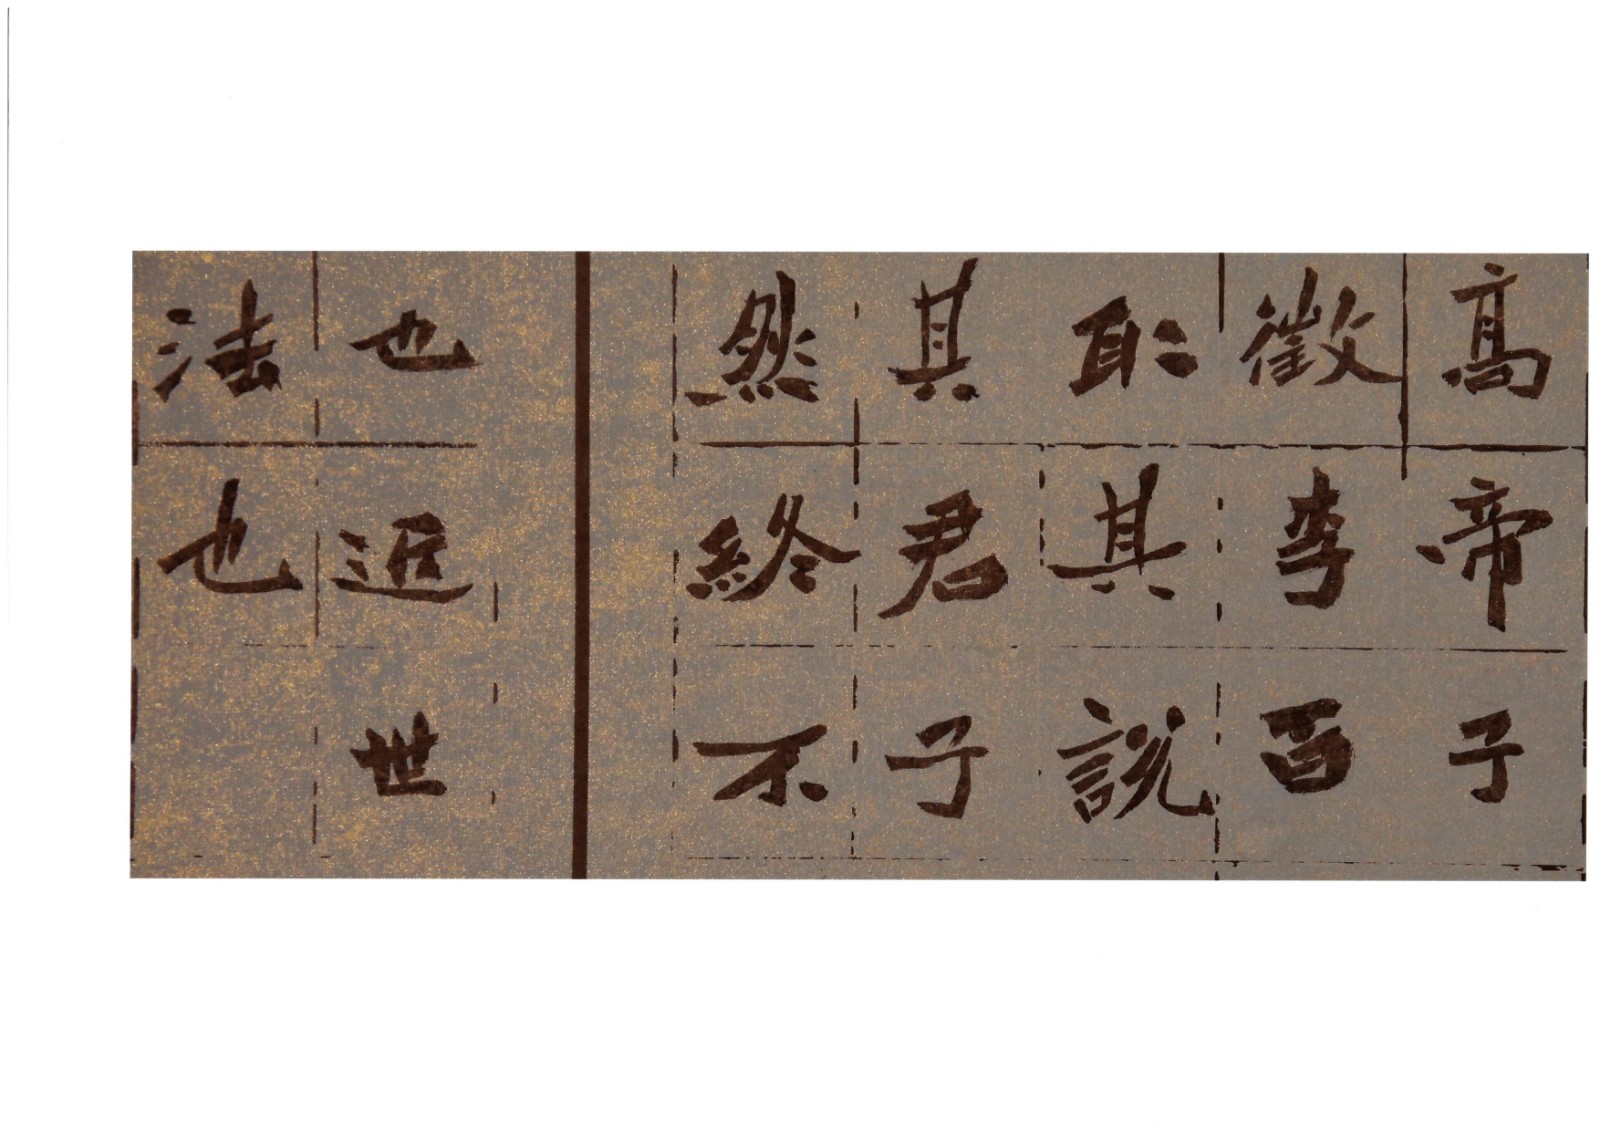 高帝子
徵李百
取其説
其君子
然終不
也近世
法也